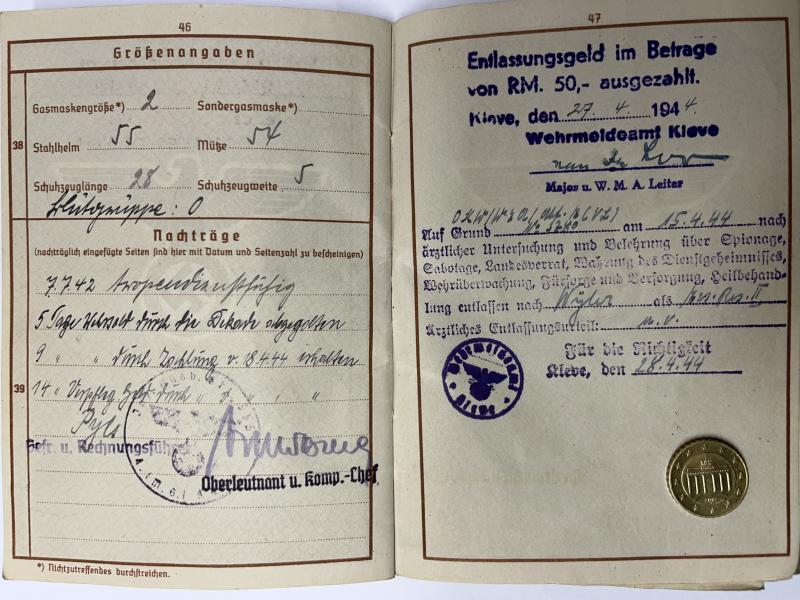 46
Größenangaben
38
Gasmaskengröße*) 2 Sondergasmaske*)
Stahlhelm 55 Mütze 54
Schuhzeuglänge 28 Schuhzeugweite 5
Blutgruppe: O
Nachträge
(nachträglich eingefügte Seiten sind hier mit Datum und Seitenzahl zu bescheinigen)
39
7.7.42 tropendienstfähig
5 Tage Wehrsold durch die Dekade abgegolten
9 " " durch Zahlung v. 18.4.44 erhalten
14 " Verpfleg. Geld durch " " " "
Gefr. u. Rechnungsführer
Oberleutnant u. Komp.-Chef
*) Nichtzutreffendes durchstreichen.
47
Entlassungsgeld im Betrage
von RM. 50,- ausgezahlt.
Kleve, den 27. 4. 1944.
Wehrmeldeamt Kleve
Major u. W. M. A. Leiter
Auf Grund am 15.4.44 nach
ärztlicher Untersuchung und Belehrung über Spionage,
Sabotage, Landesverrat, Wahrung des Dienstgeheimnisses,
Wehrüberwachung, Fürsorge und Versorgung, Heilbehand-
lung entlassen nach Wyler als Ers. Res. II
Ärztliches Entlassungsurteil:
Für die Richtigkeit
Kleve, den 28.4.44
Wehrmeldeamt
Kleve